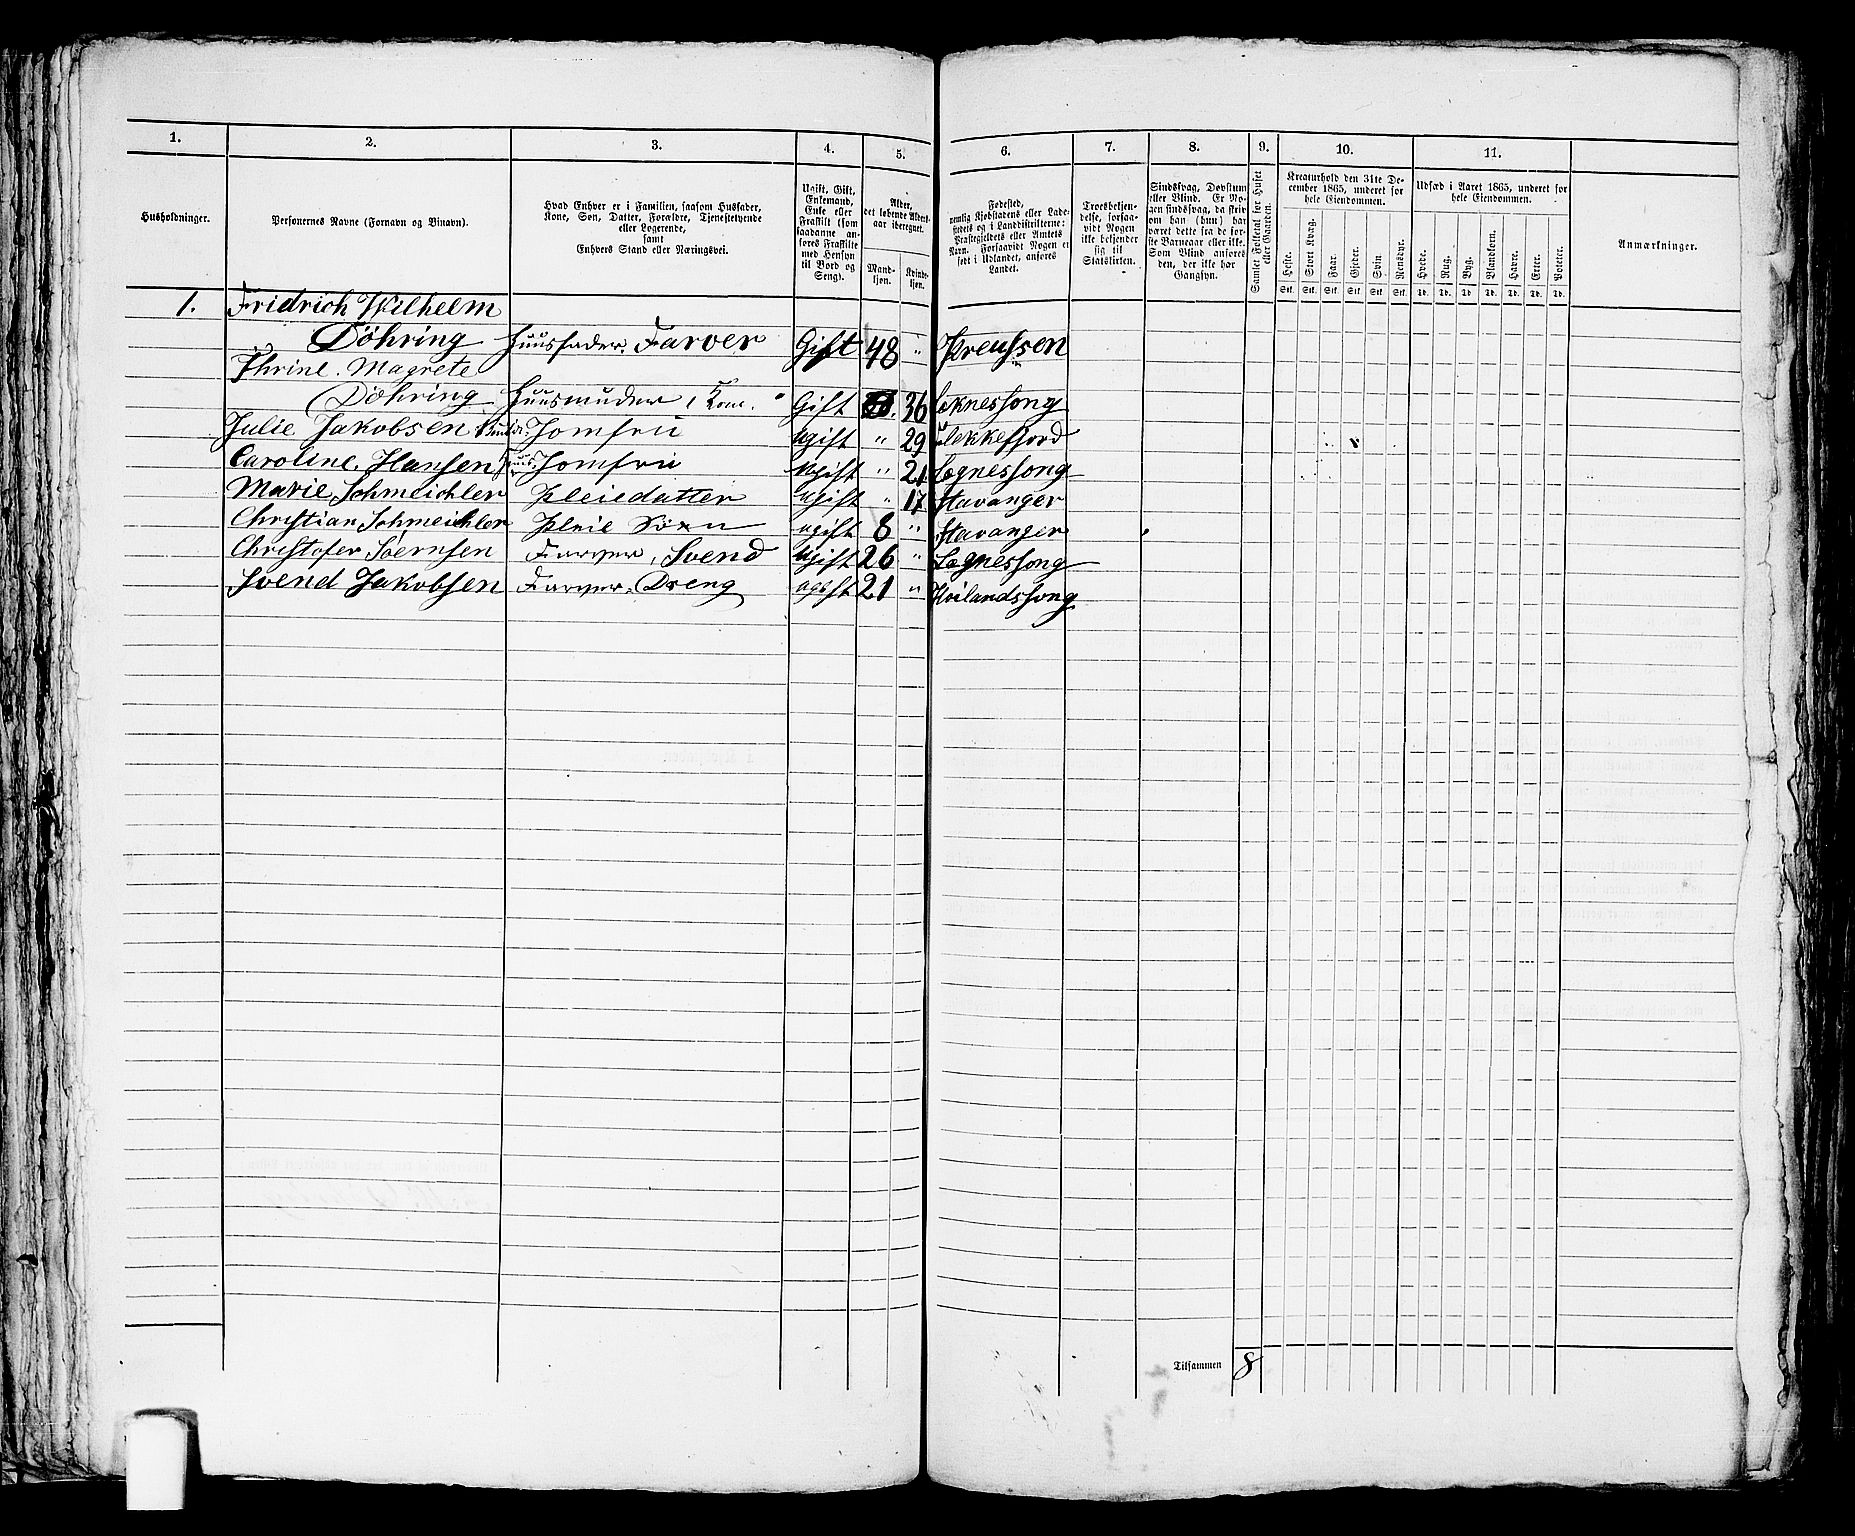 1. 2. 3. 4. 5. 6. 7. 8. 9. 10. 11.
Husholdninger.
Personernes Navne (Fornavn og Binavn).
Hvad Enhver er i Familien, saasom Husfader,
Kone, Søn, Datter, Forældre, Tjenestetyende
eller Logerende,
samt
Enhvers Stand eller Næringsvei.
Ugift, Gift,
Enkemand,
Enke eller
Fraskilt (som
saadanne an-
føres Fraskilte
med Hensyn
til Bord og
Seng).
Alder,
det løbende Alders-
aar iberegnet.
Mand-
kjøn.
Kvinde-
kjøn.
Fødested,
nemlig Kjøbstadens eller Lade-
stedets og i Landdistrikterne:
Præstegjeldets eller Amtets
Navn. Forsaavidt Nogen er
født i Udlandet, anføres
Landet.
Troesbekjen-
delse, forsaa-
vidt Nogen
ikke bekjender
sig til
Statskirken.
Sindssvag, Døvstum
eller Blind. Er No-
gen sindssvag, da skriv
om han (hun) har
været dette fra de før-
ste Barneaar eller ikke.
Som Blind anføres
den, der ikke har
Gangsyn.
Samlet Folketal for Huset
eller Gaarden.
Kreaturhold den 31te De-
cember 1865, underet for
hele Eiendommen.
Heste. Stort Kvæg. Faar. Gjeter. Svin Rensdyr.
Stk. Stk. Stk. Stk. Stk. Stk.
Udsæd i Aaret 1865, underet for
hele Eiendommen.
Hvede. Rug. Byg. Blandkorn. Havre. Erter. Poteter.
Td. Td. Td. Td. Td. Td. Td.
Anmærkninger.
1. Fridrich Wilhelm
Döhring Huusfader. Farver Gift 48 " Preussen
Thrine. Magrete
Döhring Huusmuder, Kone. Gift 36 Loknessong
Julie Jakobsen Jomfru ugift " 29 Flekkefjord
Caroline. Hansen Jomfru ugift " 21 Sognessong
Marie Schmeichler Pleiedatter ugift " 17 Stavanger
Christian Schmeichler Pleie Søn ugift 8 " Stavanger
Christofer Søernsen Farver, Svend ugift 26 " Sognessong
Svend Jakobsen Farver, Dreng ugift 21 " Höilandssong
Tilsammen 8